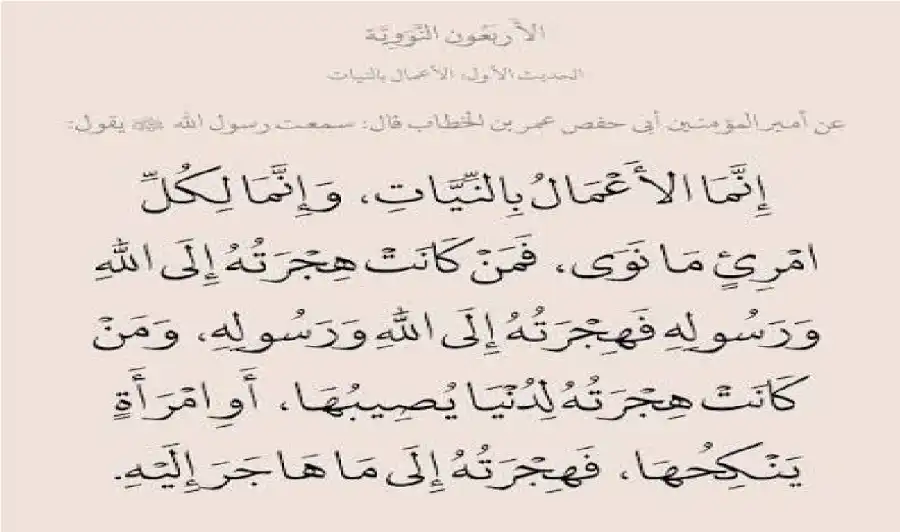 الأربعون النَّوَوِيَّة
الحديث الأول: الأعمال بالنيات
عن أمير المؤمنين أبي حفص عمر بن الخطاب قال: سمعت رسول الله ﷺ يقول:
إِنَّمَا الأَعْمَالُ بِالنِّيَّاتِ، وَإِنَّمَا لِكُلِّ
امْرِئٍ مَا نَوَى، فَمَنْ كَانَتْ هِجْرَتُهُ إِلَى اللهِ
وَرَسُولِهِ فَهِجْرَتُهُ إِلَى اللهِ وَرَسُولِهِ، وَمَنْ
كَانَتْ هِجْرَتُهُ لِدُنْيَا يُصِيبُهَا، أَوِ امْرَأَةٍ
يَنْكِحُهَا، فَهِجْرَتُهُ إِلَى مَا هَاجَرَ إِلَيْهِ.